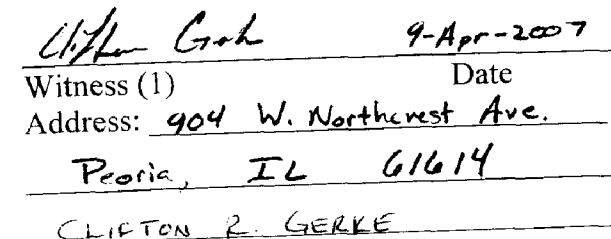 Clifton Gerke 9-Apr-2007
Witness (1) Date
Address: 904 W. Northcrest Ave.
Peoria, IL 61614
CLIFTON R. GERKE